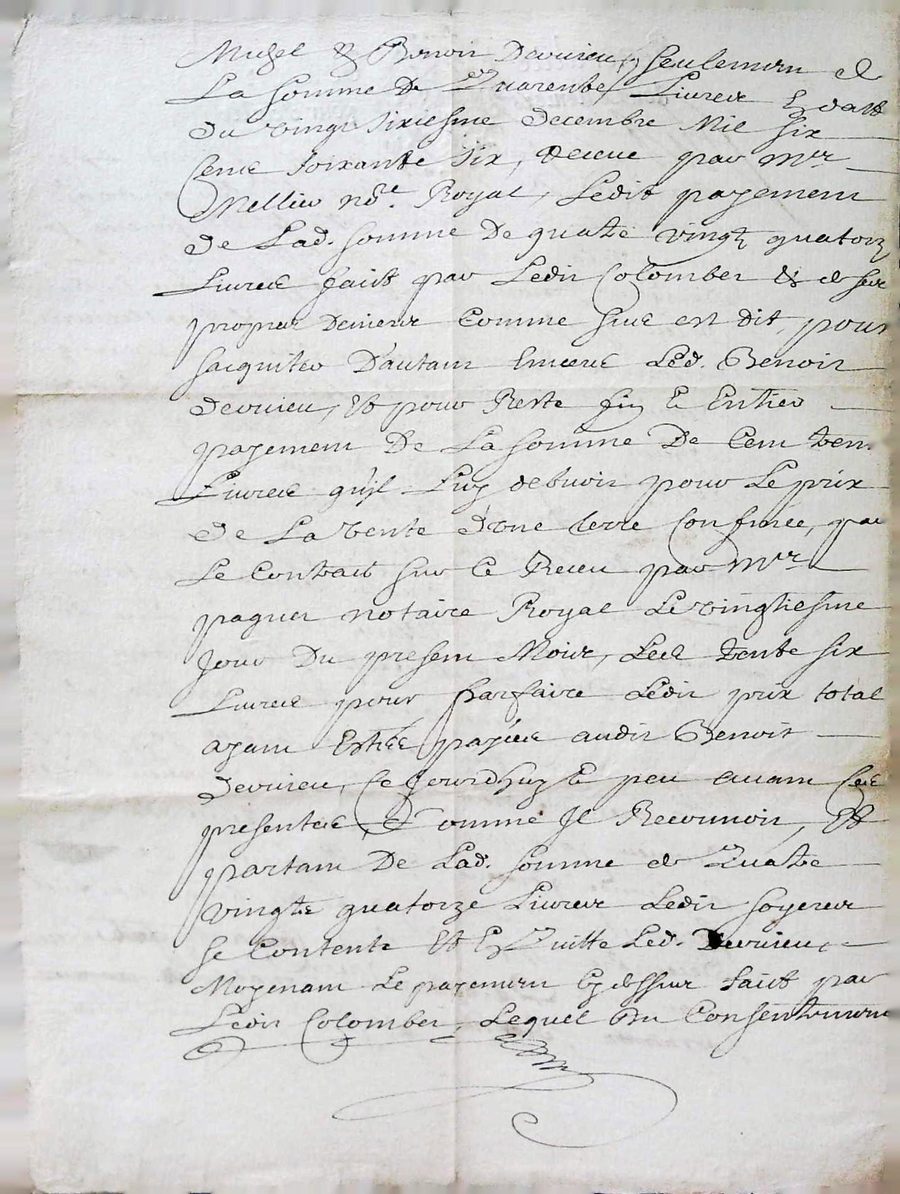 Michel & Benoir Devrieu, seulemen de
La somme De Quarente Livres En datte
du vingt sixiesme decembre Mil six
Cens soixante six, Receue par Mre
Mellier Nore. Royal, Ledit payement
de Lad. somme De quatre vingt quatorz
Livres fait par Ledir Colomber & de ses
propres Deniers Comme sus est dit, pour
sacquiter D'autam Envers Led. Benoir
Devrieu, Et pour Reste fin & Entier
payement De La somme De Cent tren
Livres qu'il Luy debvoir pour Le prix
de La vente d'une terre Confinée, par
Le Contrait sur ce Receu par Mre
paguer notaire Royal Le vingtiesme
Jour Du presem Mois, Les trente six
Livres pour parfaire Ledir prix total
ayam Estées payées audir Benoit
Devrieu, Ce Jourdhuy & peu avam Ces
presentes, Comme Il Reconnoir, Et
partam De Lad. somme de Quatre
vingts quatorze Livres Ledir soyeur
se Contente Et En Quitte Led. Devrieu,
Moyenam Le payemen Cy dessus fait par
Ledir Colomber, Lequel Du Consentemem